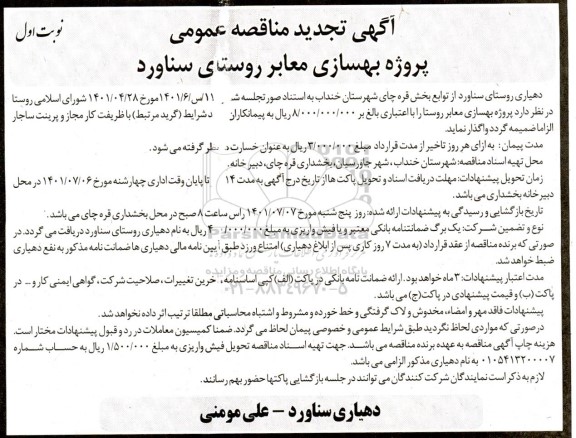 آگهی تجدید مناقصه عمومی
نوبت اول
پروژه بهسازی معابر روستای سناورد
دهیاری روستای سناورد از توابع بخش قره چای شهرستان خنداب به استناد صورتجلسه ش ۱۱/س/۱۴۰۱/۶ مورخ ۱۴۰۱/۰۴/۲۸ شورای اسلامی روستا
در نظر دارد پروژه بهسازی معابر روستا را با اعتباری بالغ بر ۸/۰۰۰/۰۰۰/۰۰۰ ریال به پیمانکاران د شرایط (گرید مرتبط) با ظرفیت کار مجاز و پرینت ساجار
الزاما ضمیمه گردد واگذار نماید.
مدت پیمان: به ازای هر روز تاخیر از مدت قرارداد مبلغ ۳/۰۰۰/۰۰۰ ریال به عنوان خسارت در نظر گرفته می شود.
محل تهیه اسناد مناقصه: شهرستان خنداب، شهر جاورسیان، بخشداری قره چای، دبیرخانه.
زمان تحویل پیشنهادات: مهلت دریافت اسناد و تحویل پاکت ها از تاریخ درج آگهی به مدت ۱۴ تا پایان وقت اداری چهارشنبه مورخ ۱۴۰۱/۰۷/۰۶ در محل
دبیرخانه بخشداری می باشد.
تاریخ بازگشایی و رسیدگی به پیشنهادات ارائه شده: روز پنج شنبه مورخ ۱۴۰۱/۰۷/۰۷ رأس ساعت ۸ صبح در محل بخشداری قره چای می باشد.
نوع و تضمین شرکت: یک برگ ضمانتنامه بانکی معتبر و یا فیش واریزی به مبلغ ریال به نام دهیاری روستای سناورد دریافت می گردد. در
صورتی که برنده مناقصه از عقد قرارداد (به مدت ۷ روز کاری پس از ابلاغ دهیاری) امتناع ورزد طبق آیین نامه مالی دهیاری ها ضمانت نامه مذکور به نفع دهیاری
ضبط خواهد شد.
پایگاه اطلاع رسانی مناقصه و مزایده
مدت اعتبار پیشنهادات: ۳ ماه خواهد بود. ارائه ضمانت نامه بانکی در پاکت (الف) کپی اساسنامه، آخرین تغییرات، صلاحیت شرکت، گواهی ایمنی کار و - در
۰۲۱-۸۸۳۴۹۶۷۰-۵
پاکت (ب) و قیمت پیشنهادی در پاکت (ج) می باشد.
پیشنهادات فاقد مهر و امضاء، مخدوش و لاک گرفتگی و خط خورده و مشروط و اشتباه محاسباتی مطلقا ترتیب اثر داده نخواهد شد.
در صورتی که مواردی لحاظ نگردید طبق شرایط عمومی و خصوصی پیمان لحاظ می گردد. ضمنا کمیسیون معاملات در رد و قبول پیشنهادات مختار است.
هزینه چاپ آگهی مناقصه به عهده برنده مناقصه می باشد. جهت تهیه اسناد مناقصه تحویل فیش واریزی به مبلغ ۱/۵۰۰/۰۰۰ ریال به حساب شماره
۰۱۰۵۴۱۳۲۰۰۰۰۷ به نام دهیاری مذکور الزامی می باشد.
لازم به ذکر است نمایندگان شرکت کنندگان می توانند در جلسه بازگشایی پاکتها حضور بهم رسانند.
دهیاری سناورد - علی مومنی